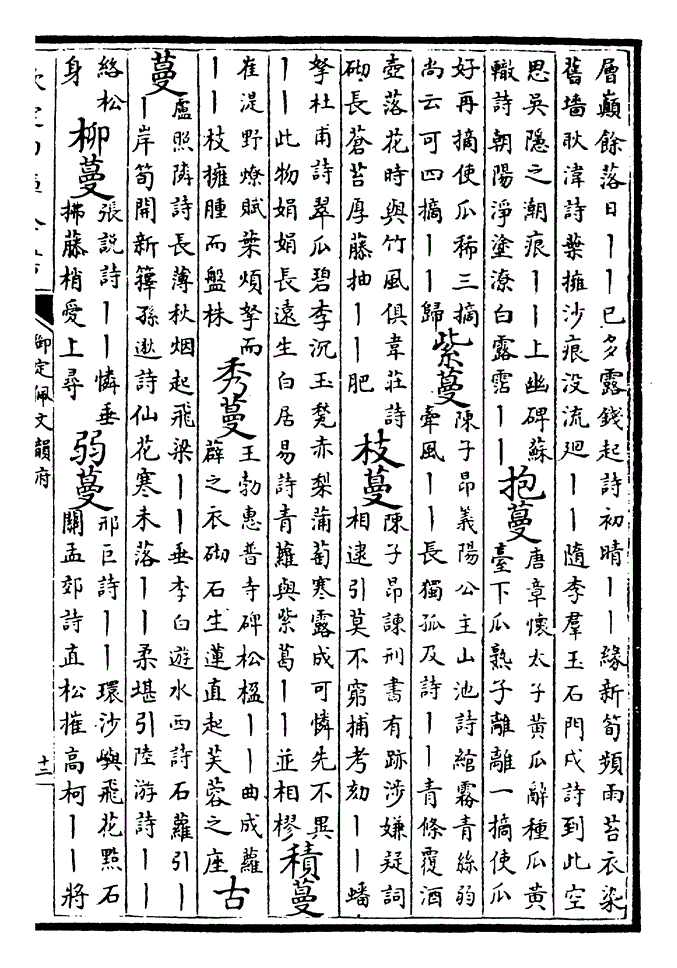 層巔餘落日丨丨已多露錢起詩初晴丨丨緣新筍頻雨苔衣染
舊墻耿湋詩葉擁沙痕没流廻丨丨隨李羣玉石門戍詩到此空
思吳隱之潮痕丨丨上幽碑蘇
轍詩朝陽淨塗潦白露霑丨丨
抱蔓
唐章懷太子黄瓜辭種瓜黄
臺下瓜熟子離離一摘使瓜
好再摘使瓜稀三摘
尚云可四摘丨丨歸
紫蔓
陳子昂義陽公主山池詩綰霧青絲弱
牽風丨丨長獨孤及詩丨丨青條覆酒
壺落花時與竹風俱韋莊詩
砌長蒼苔厚藤抽丨丨肥
枝蔓
陳子昂諫刑書有跡涉嫌疑詞
相逮引莫不窮捕考劾丨丨蟠
拏杜甫詩翠瓜碧李沉玉甃赤梨蒲萄寒露成可憐先不異
丨丨此物娟娟長遠生白居易詩青蘿與紫葛丨丨並相樛
積蔓
崔湜野燎賦葉煩拏而
丨丨枝擁腫而盤株
秀蔓
王勃惠普寺碑松楹丨丨曲成蘿
薜之衣砌石生蓮直起芙蓉之座
古
蔓
盧照隣詩長薄秋烟起飛梁丨丨垂李白遊水西詩石蘿引丨
丨岸筍開新籜孫逖詩仙花寒未落丨丨柔堪引陸游詩丨丨
絡松
身
柳蔓
張説詩丨丨憐垂
拂藤梢愛上尋
弱蔓
邢巨詩丨丨環沙嶼飛花㸃石
關孟郊詩直松摧高柯丨丨將
御定佩文韻府
十二